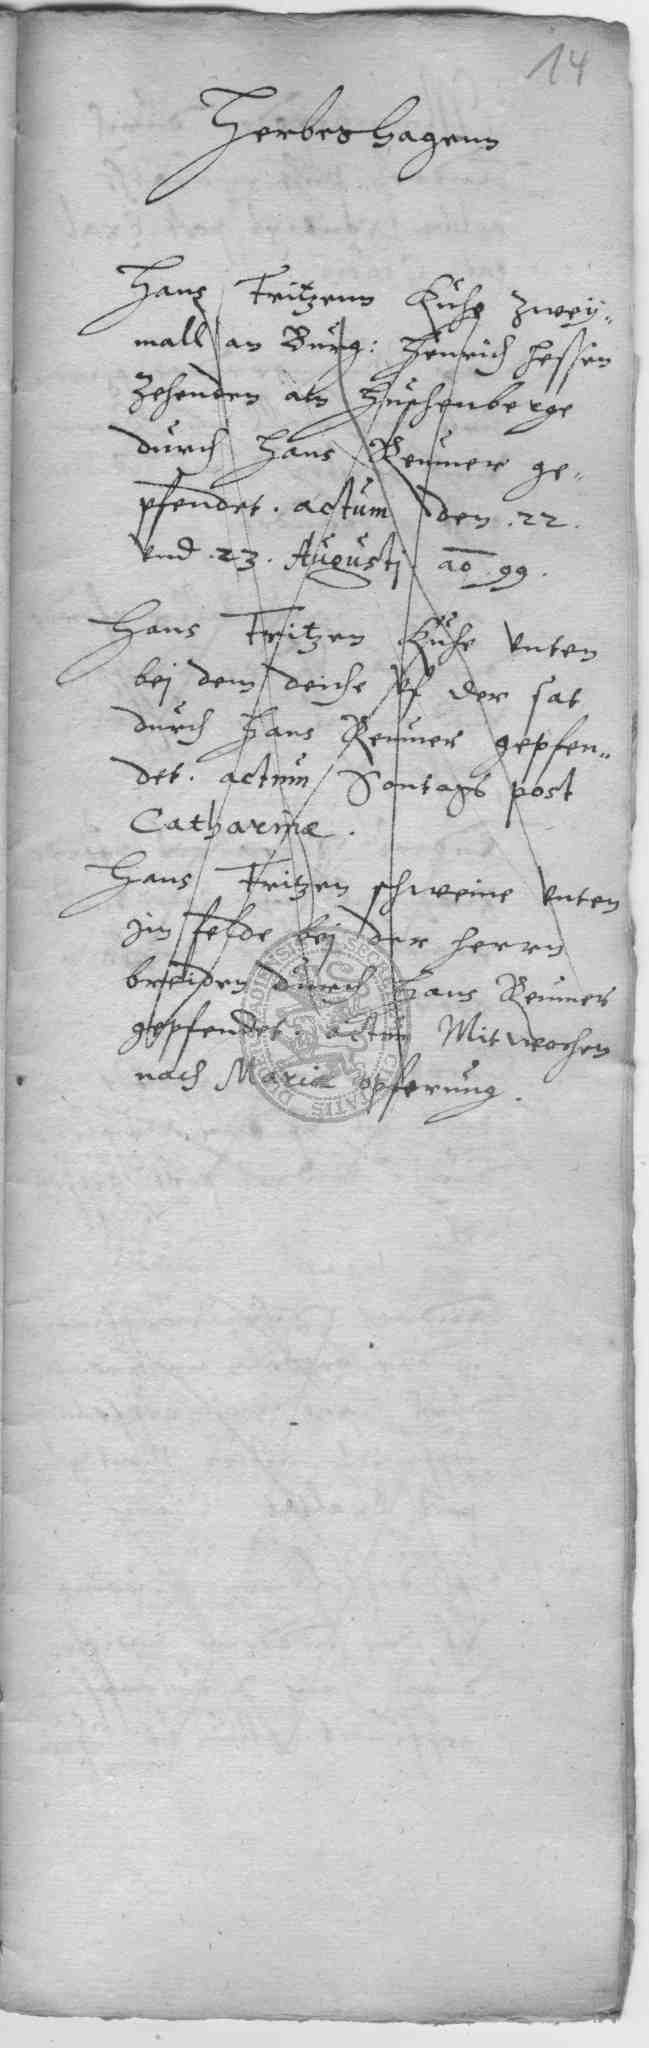 14
Herbershagenn
Hans Fritzenn Kuhe zwey„
mall an Burg: Henrich Hessen
Zehenden am Huschenberge
durch Hans Reumer ge„
pfendet. actum den .22.
vnd .23. Augustj ao 99.
Hans Fritzen Kuhe vnten
bej dem deiche vf der sat
durch Hans Reumer gepfen„
det. actum Sontags post
Catharinæ.
Hans Fritzen schweine vnten
jm felde bej der herrn
breiden durch Hans Reumer
gepfendet. actum Mitwochen
nach Mariæ opferung.